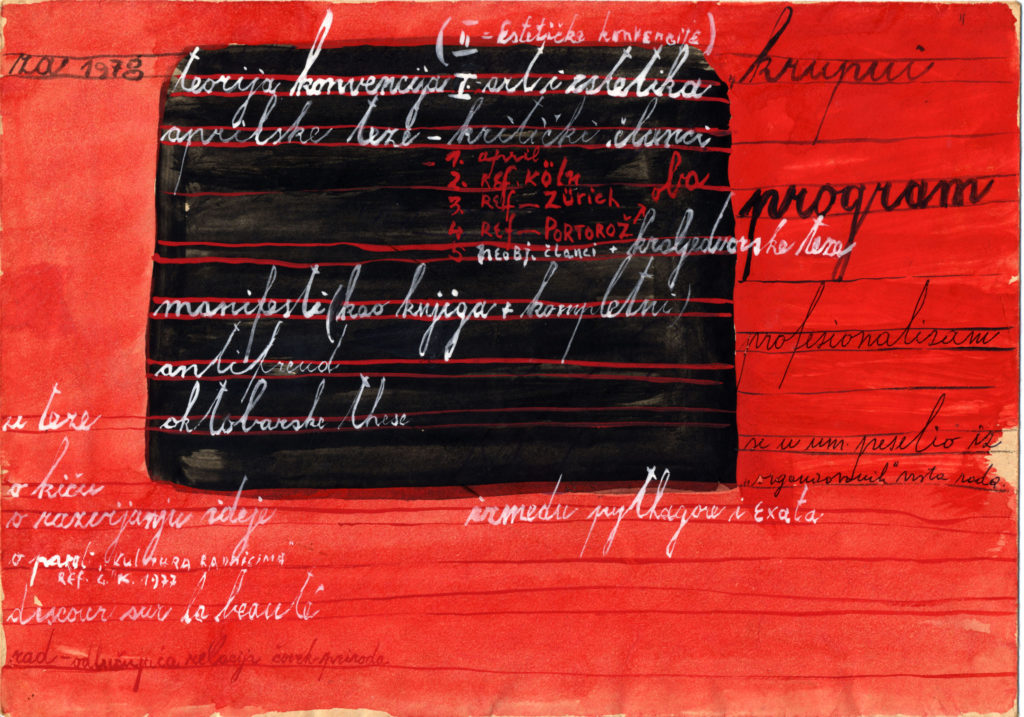 (II = Estetičke konvencije)
za 1978
teorija konvencija I - art i estetika
"krupni
aprilske teze - kritički članci
1. april
2. REF. KÖLN
oba
3. REF - ZÜRICH
program
4 REF - PORTOROŽ
5 NEOBJ. članci + kraljedvorske teze
manifesti (kao knjiga + kompletni)
profesionalizam
antifreud
oktobarske these
u teze
se u um peselio iz
"organizovanih" vrsta rada.
o kiču
o razvijanju ideje
između pythagore i Exata
o paroli "KULTURA RADNICIMA"
REF. Č. K. 1977
discour sur la beauté
rad - odlučujuća relacija čovek-priroda